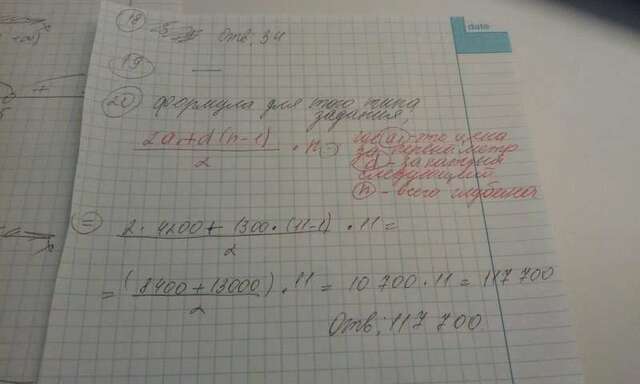 date
18 Отв. 34
19 —
20 формула для того типа
задания,
2a₁+d(n-1)
2 · n = где a₁ - это цена
за первый метр
d - за каждый
следующий
n - всего глубина
= 2·4200+1300·(11-1)
2 · 11 =
= (8400+13000)
2 · 11 = 10 700 · 11 = 117 700
Отв; 117 700